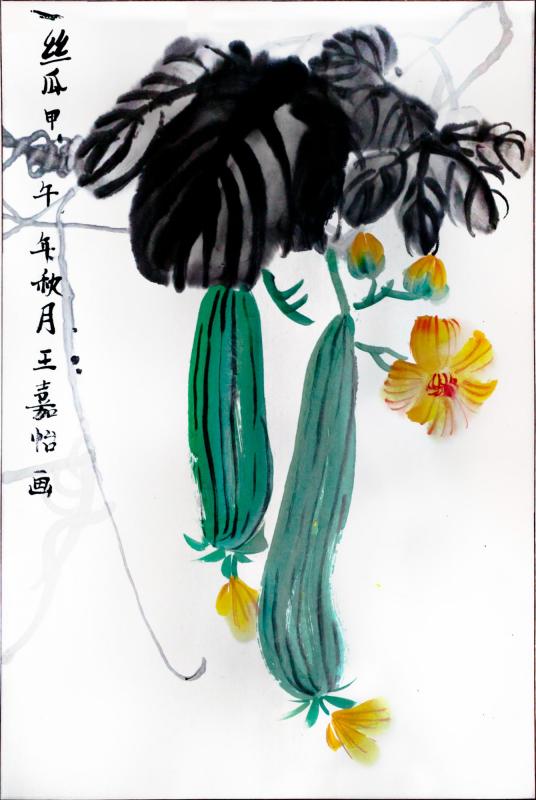 丝瓜甲午年秋月王嘉怡画